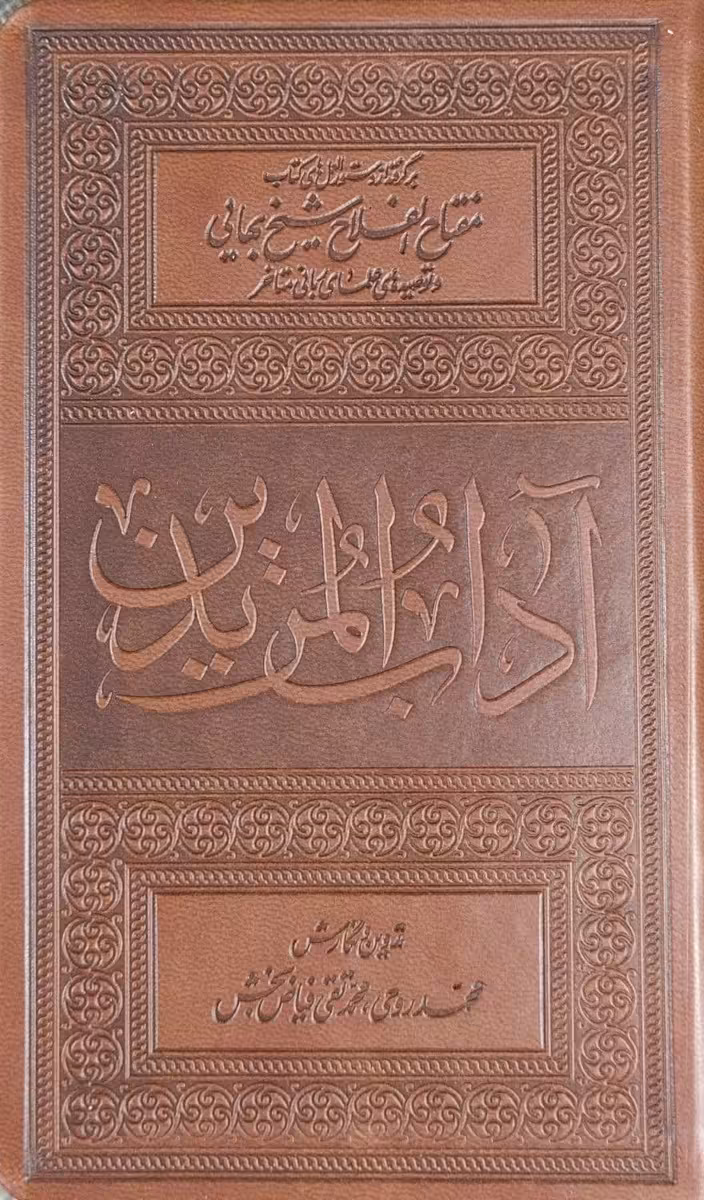 برگرفته از دستورالعمل‌های کتاب
مفتاح الفلاح شیخ بهائی
و توصیه‌های علمای ربانی متأخر
آداب المریدین
تدوین و نگارش
محمد روحی، محمد تقی فیاض بخش